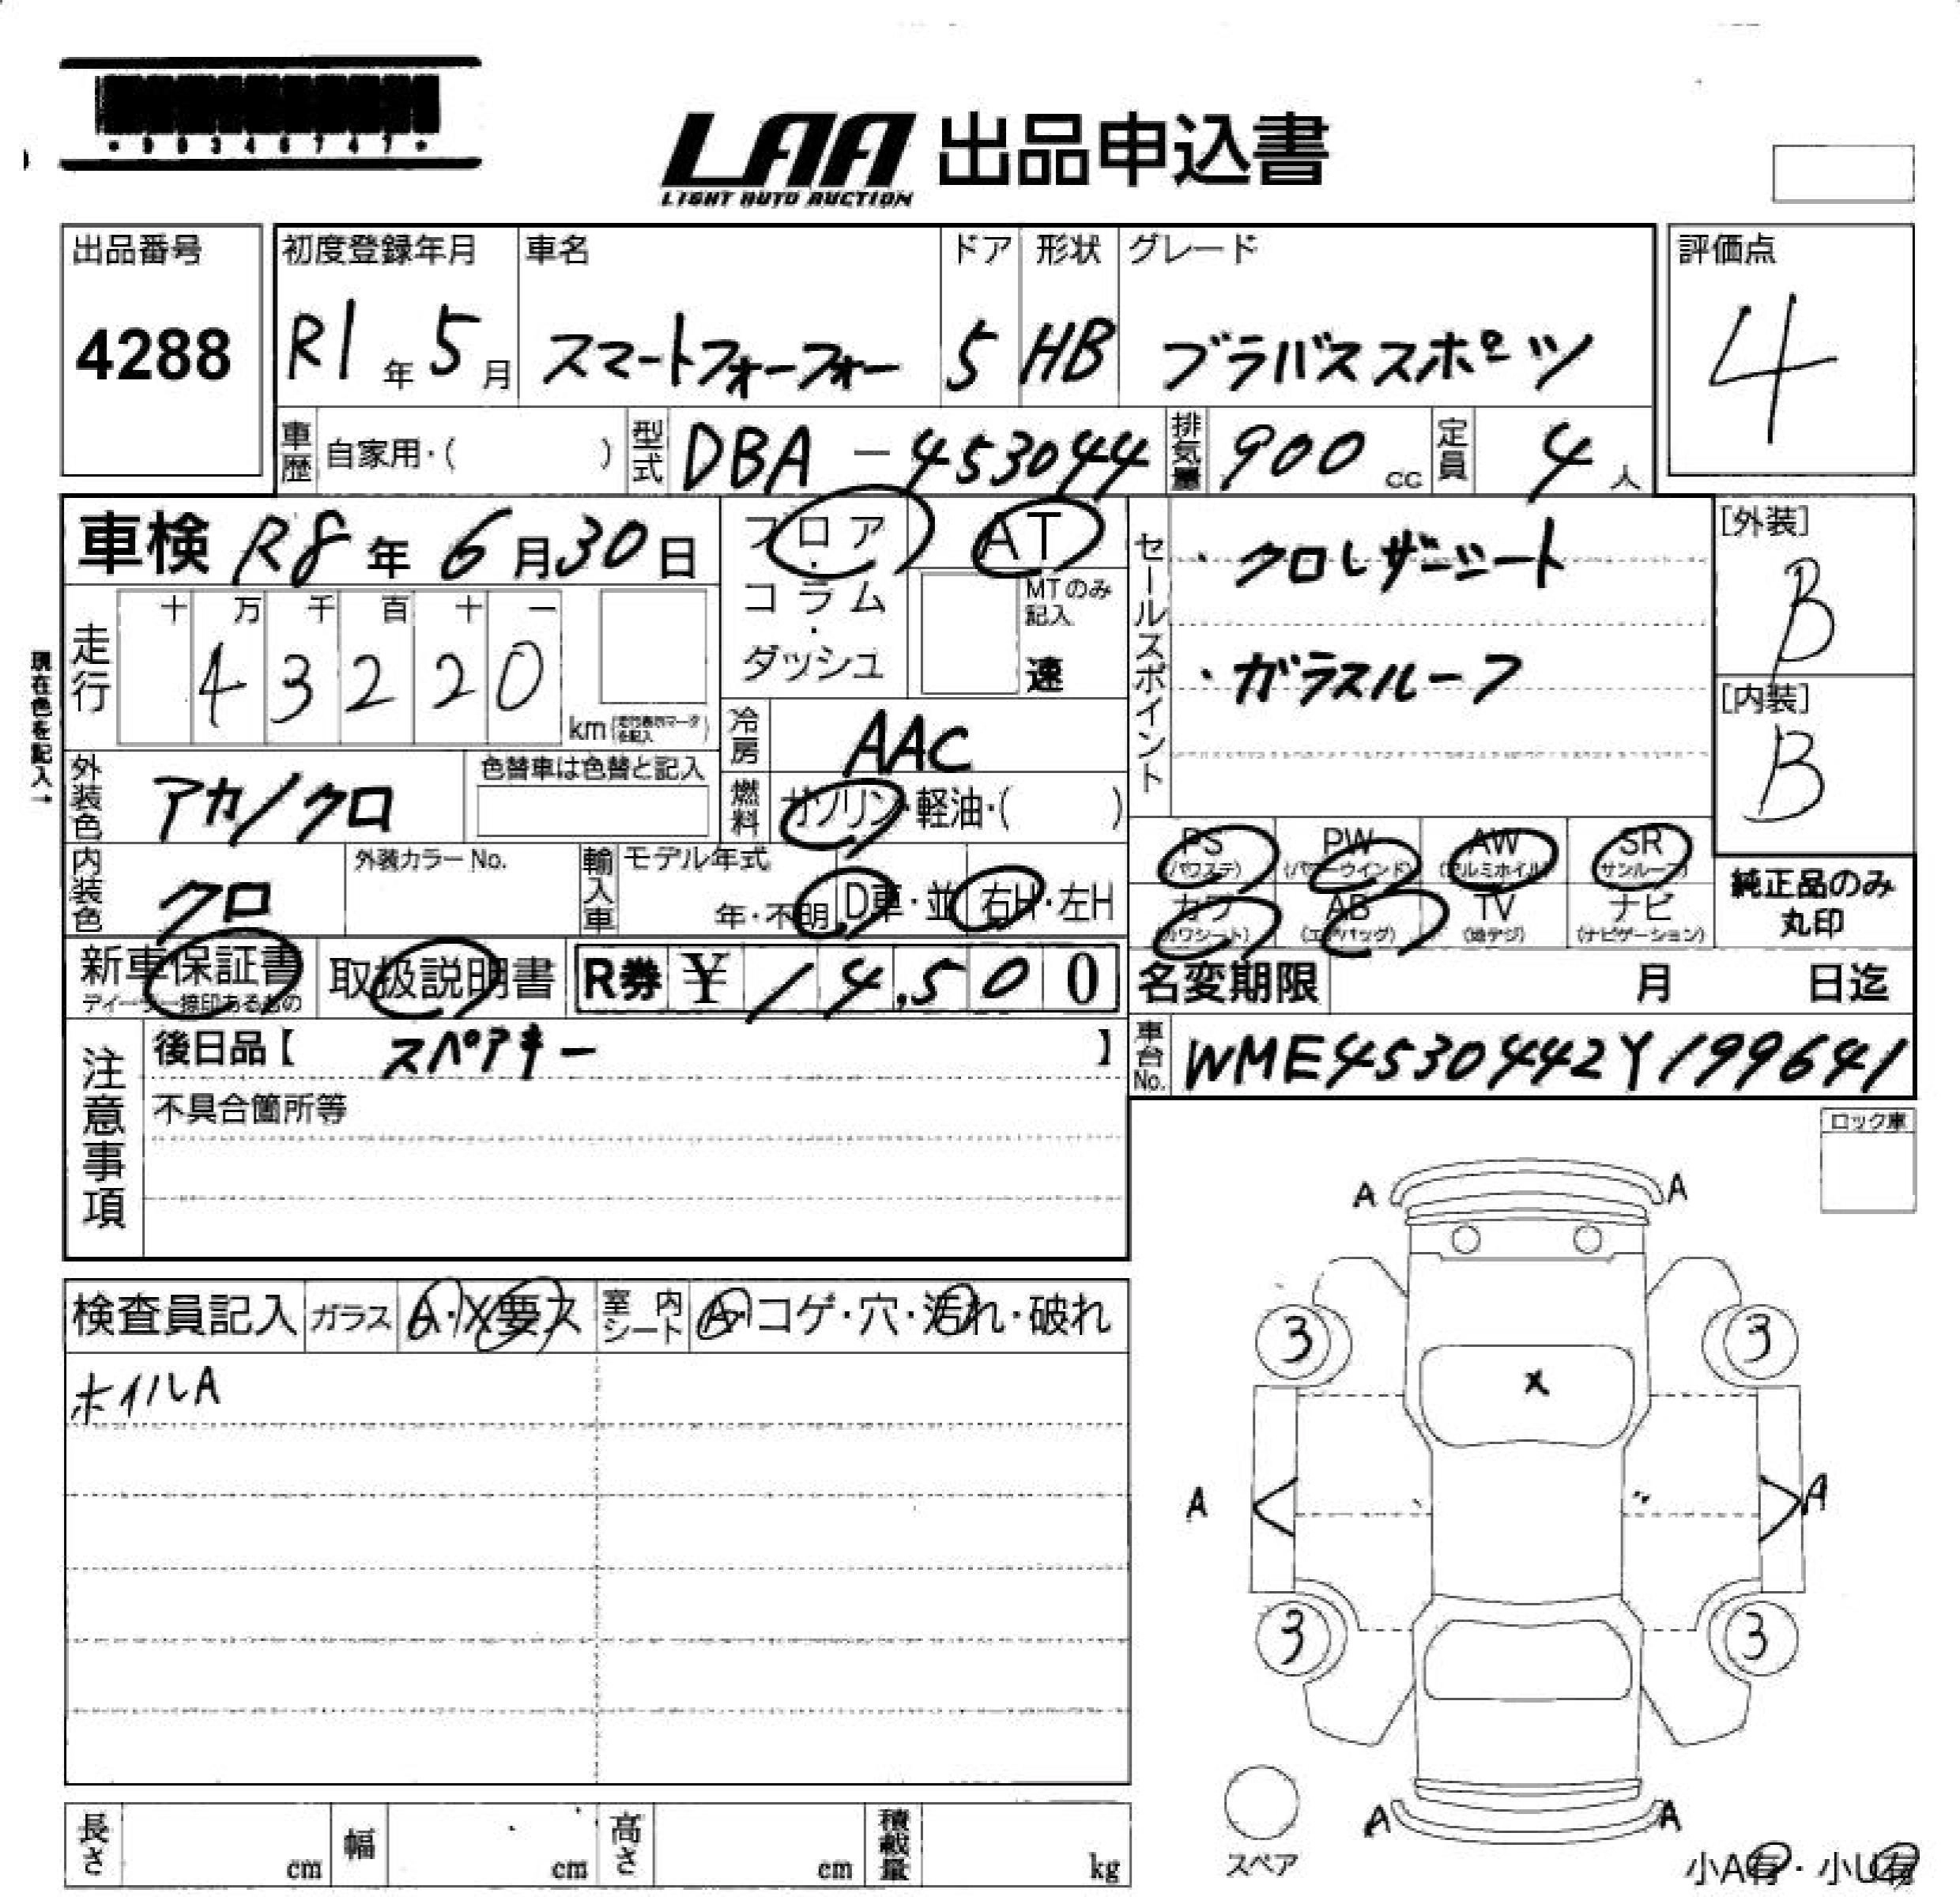 LAA 出品申込書
LIGHT AUTO AUCTION
出品番号
4288
初度登録年月
R1年5月
車名
スマートフォーフォー
ドア
5
形状
HB
グレード
ブラバススポーツ
評価点
4
車歴 自家用・( )
型式 DBA-453044
排気量 900cc
定員 4人
車検 R8年6月30日
フロア・コラム・ダッシュ
AT
MTのみ記入
速
セールスポイント
・クロレザーシート
・ガラスルーフ
[外装]
B
[内装]
B
現在色を記入→
走行
十 万 千 百 十 一
4 3 2 2 0
km
冷房 AAC
燃料 ガソリン・軽油・( )
外装色 アカ/クロ
色替車は色替と記入
内装色 クロ
外装カラーNo.
輸入車 モデル年式
年・不明 D車・並 右H・左H
PS (パワステ)
PW (パワーウインド)
AW (アルミホイル)
SR (サンルーフ)
カワ (カワシート)
AB (エアバッグ)
TV (地デジ)
ナビ (ナビゲーション)
純正品のみ
丸印
新車保証書
ディーラー捺印あるもの
取扱説明書
R券 ¥14,500
名変期限 月 日迄
車台No. WME4530442Y199641
注意事項
後日品【 スペアキー 】
不具合箇所等
ロック車
検査員記入
ガラス A・X要ス
室内シート A・コゲ・穴・汚れ・破れ
ホイルA
A A
3 3
X
A A
3 3
A A
スペア
小A有・小U有
長さ cm
幅 cm
高さ cm
積載量 kg